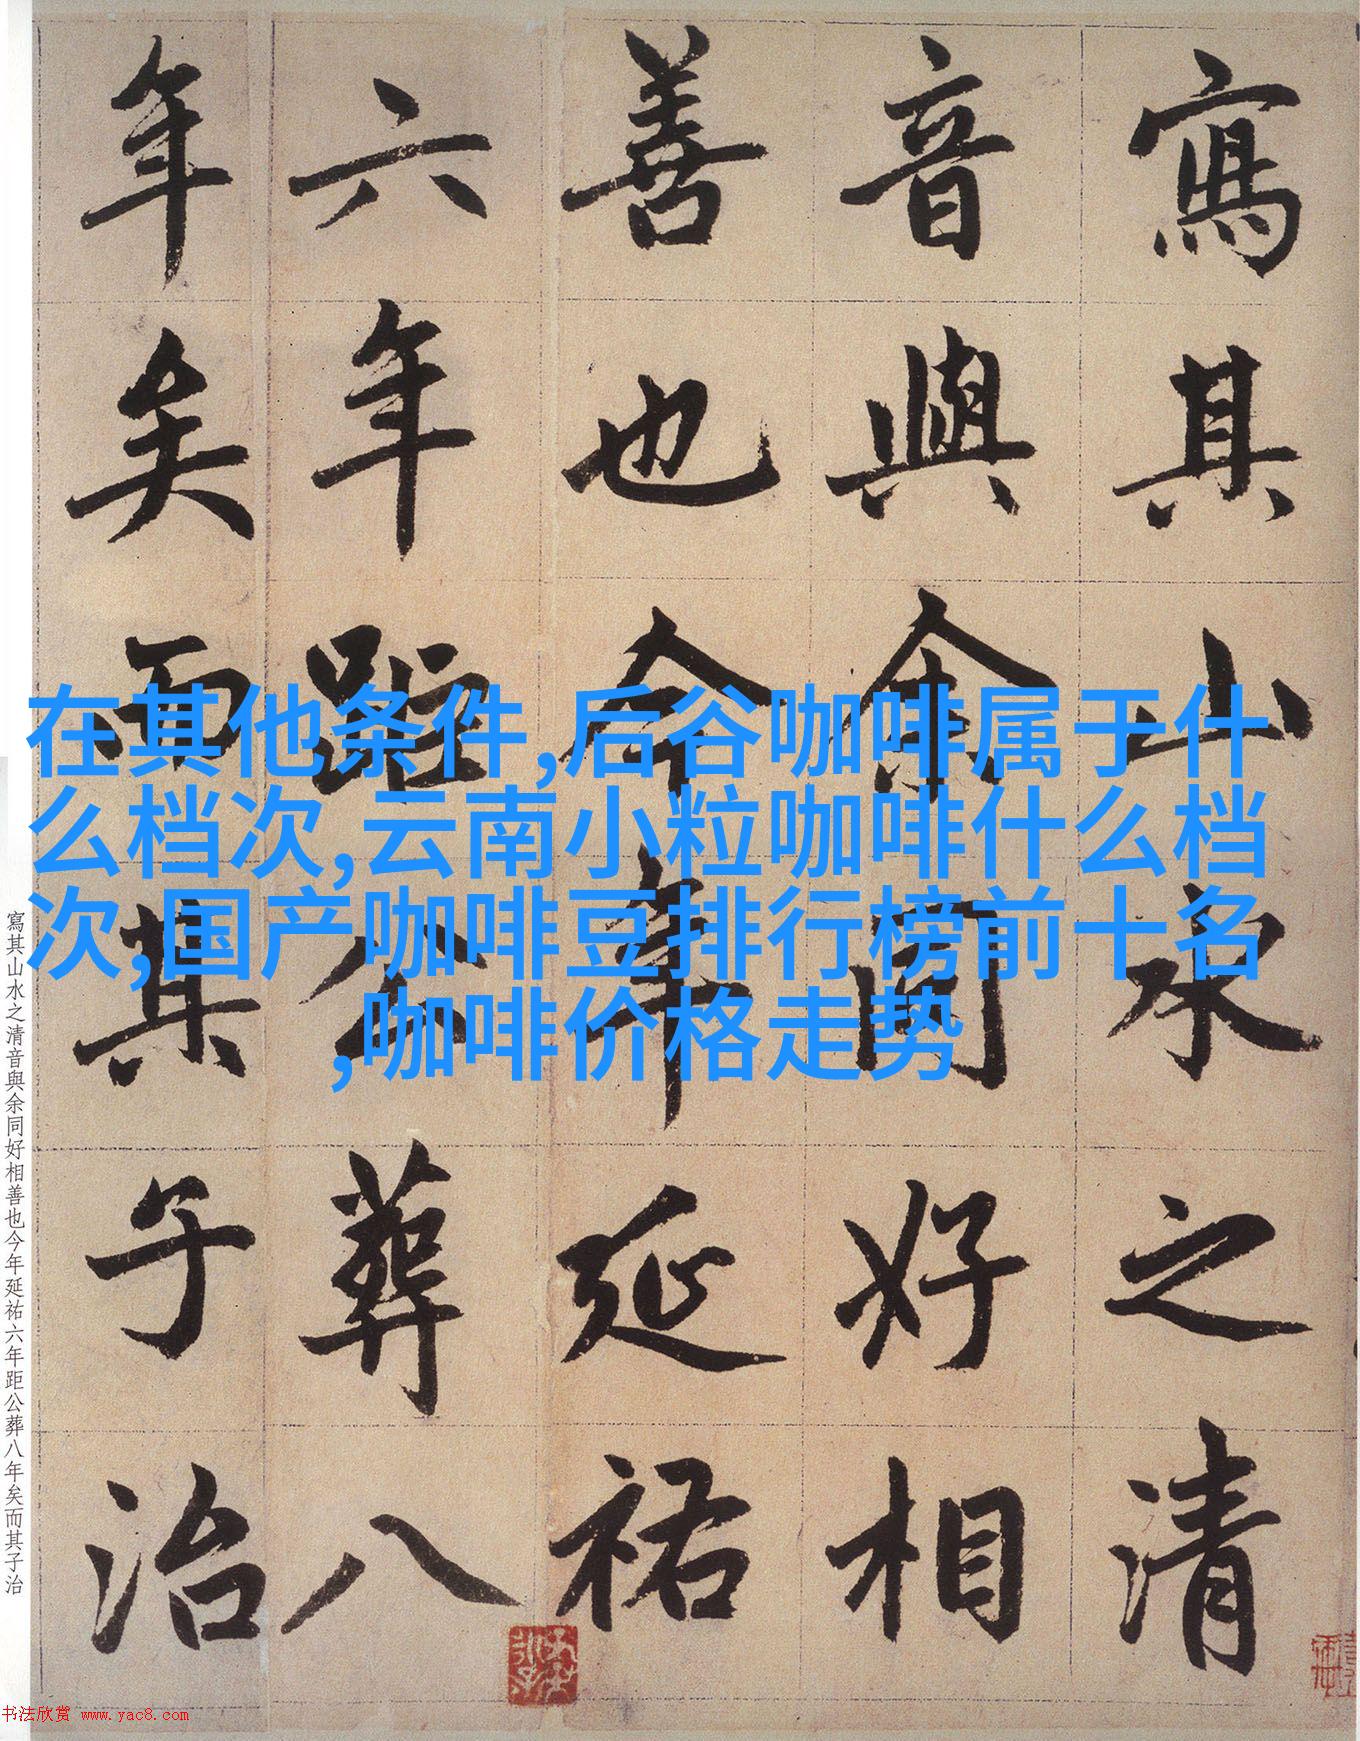 寫其山水之清
音與余同好相
善也今年延祐
六年距公葬八
年矣而其子治
在其他条件,后谷咖啡属于什
么档次,云南小粒咖啡什么档
次,国产咖啡豆排行榜前十名
,咖啡价格走势
寫其山水之清音與余同好相善也今年延祐六年距公葬八年矣而其子治
书法欣赏 www.yac8.com